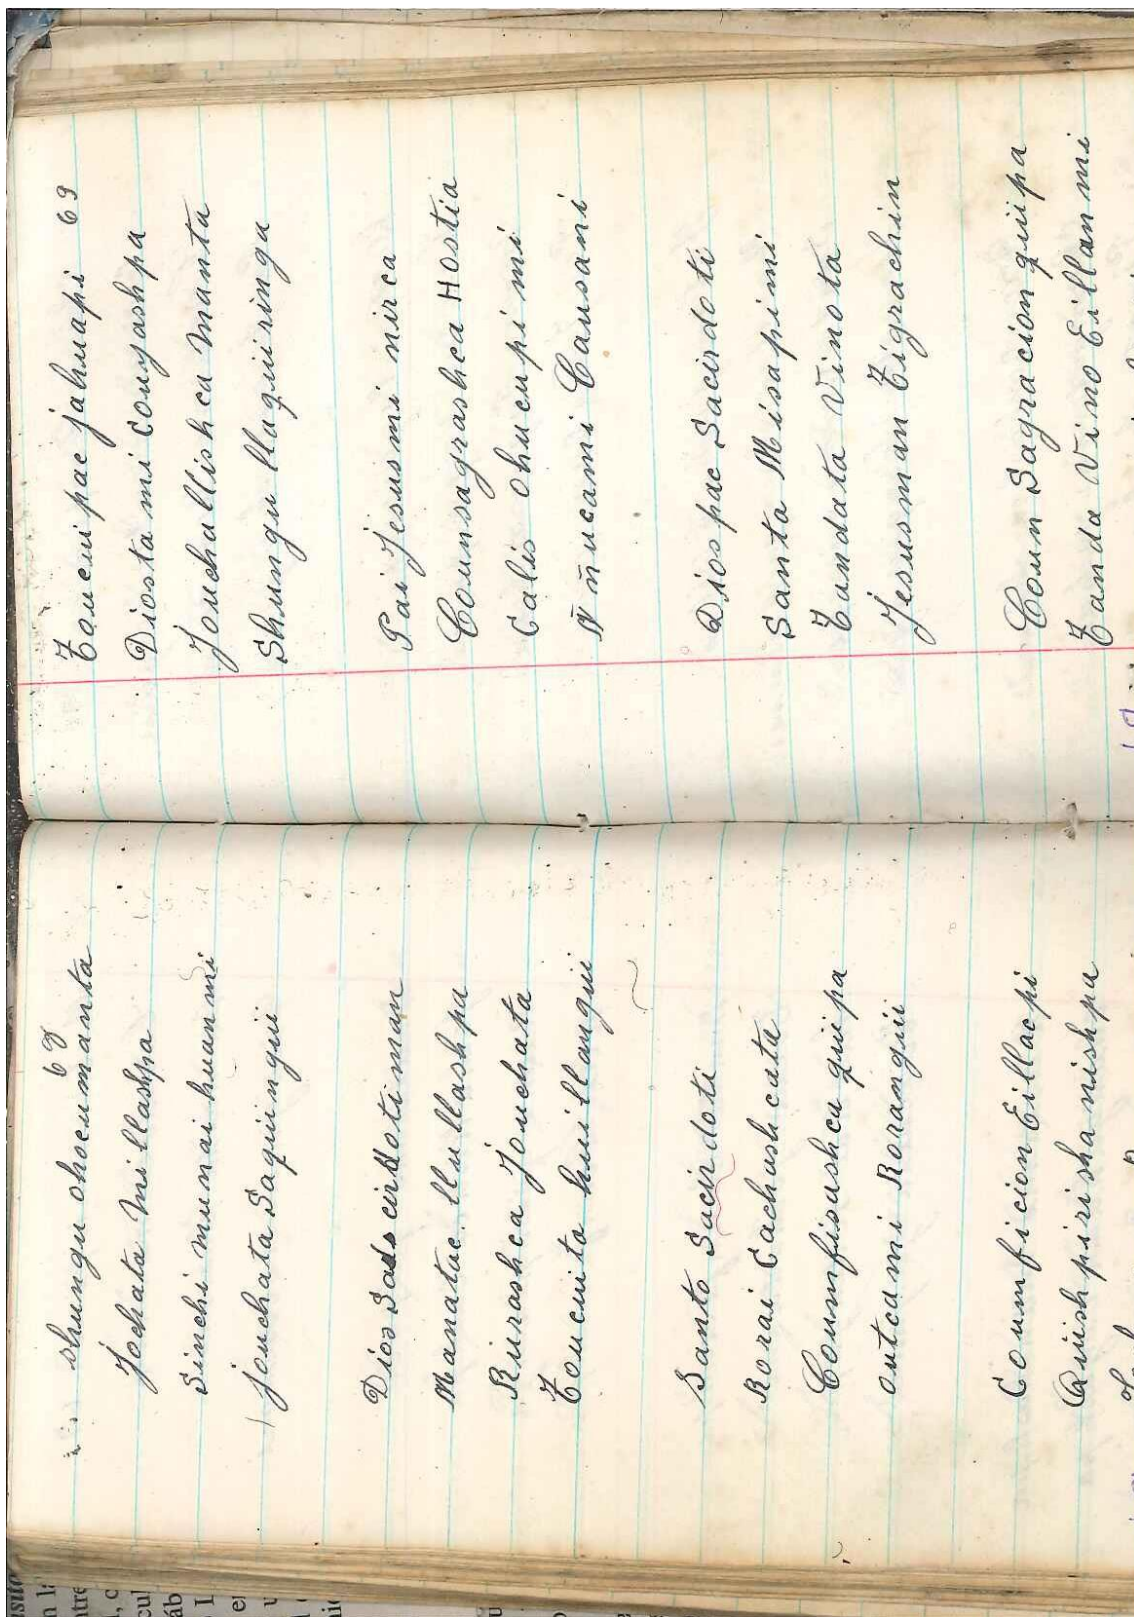 68
shungu ohocumanta
Jochata millashpa
Sinchi munai huanmi
jouchata Saquingui
Dios Sacirdotiman
Manatac llullashpa
Rurashca Jouchata
Toucuita huillangui
Santo Sacirdoti
Rorai Cachashcata
Counfisashca quipa
outcami Rorangui
Counficion Eillacpi
Quishpirisha nishpa
Toucuipac jahuapi 69
Diostami Couyashpa
Jouchallishca manta
Shungu llaquiringa
Pai Jesusmi nirca
Counsagrashca Hostia
Calis Ohucupimi
Ñucami Causani
Dios pac Sacirdoti
Santa Misapimi
Tandata Vinota
Jesusman Tigrachin
Coun Sagracion quipa
Tanda Vino Eillanmi